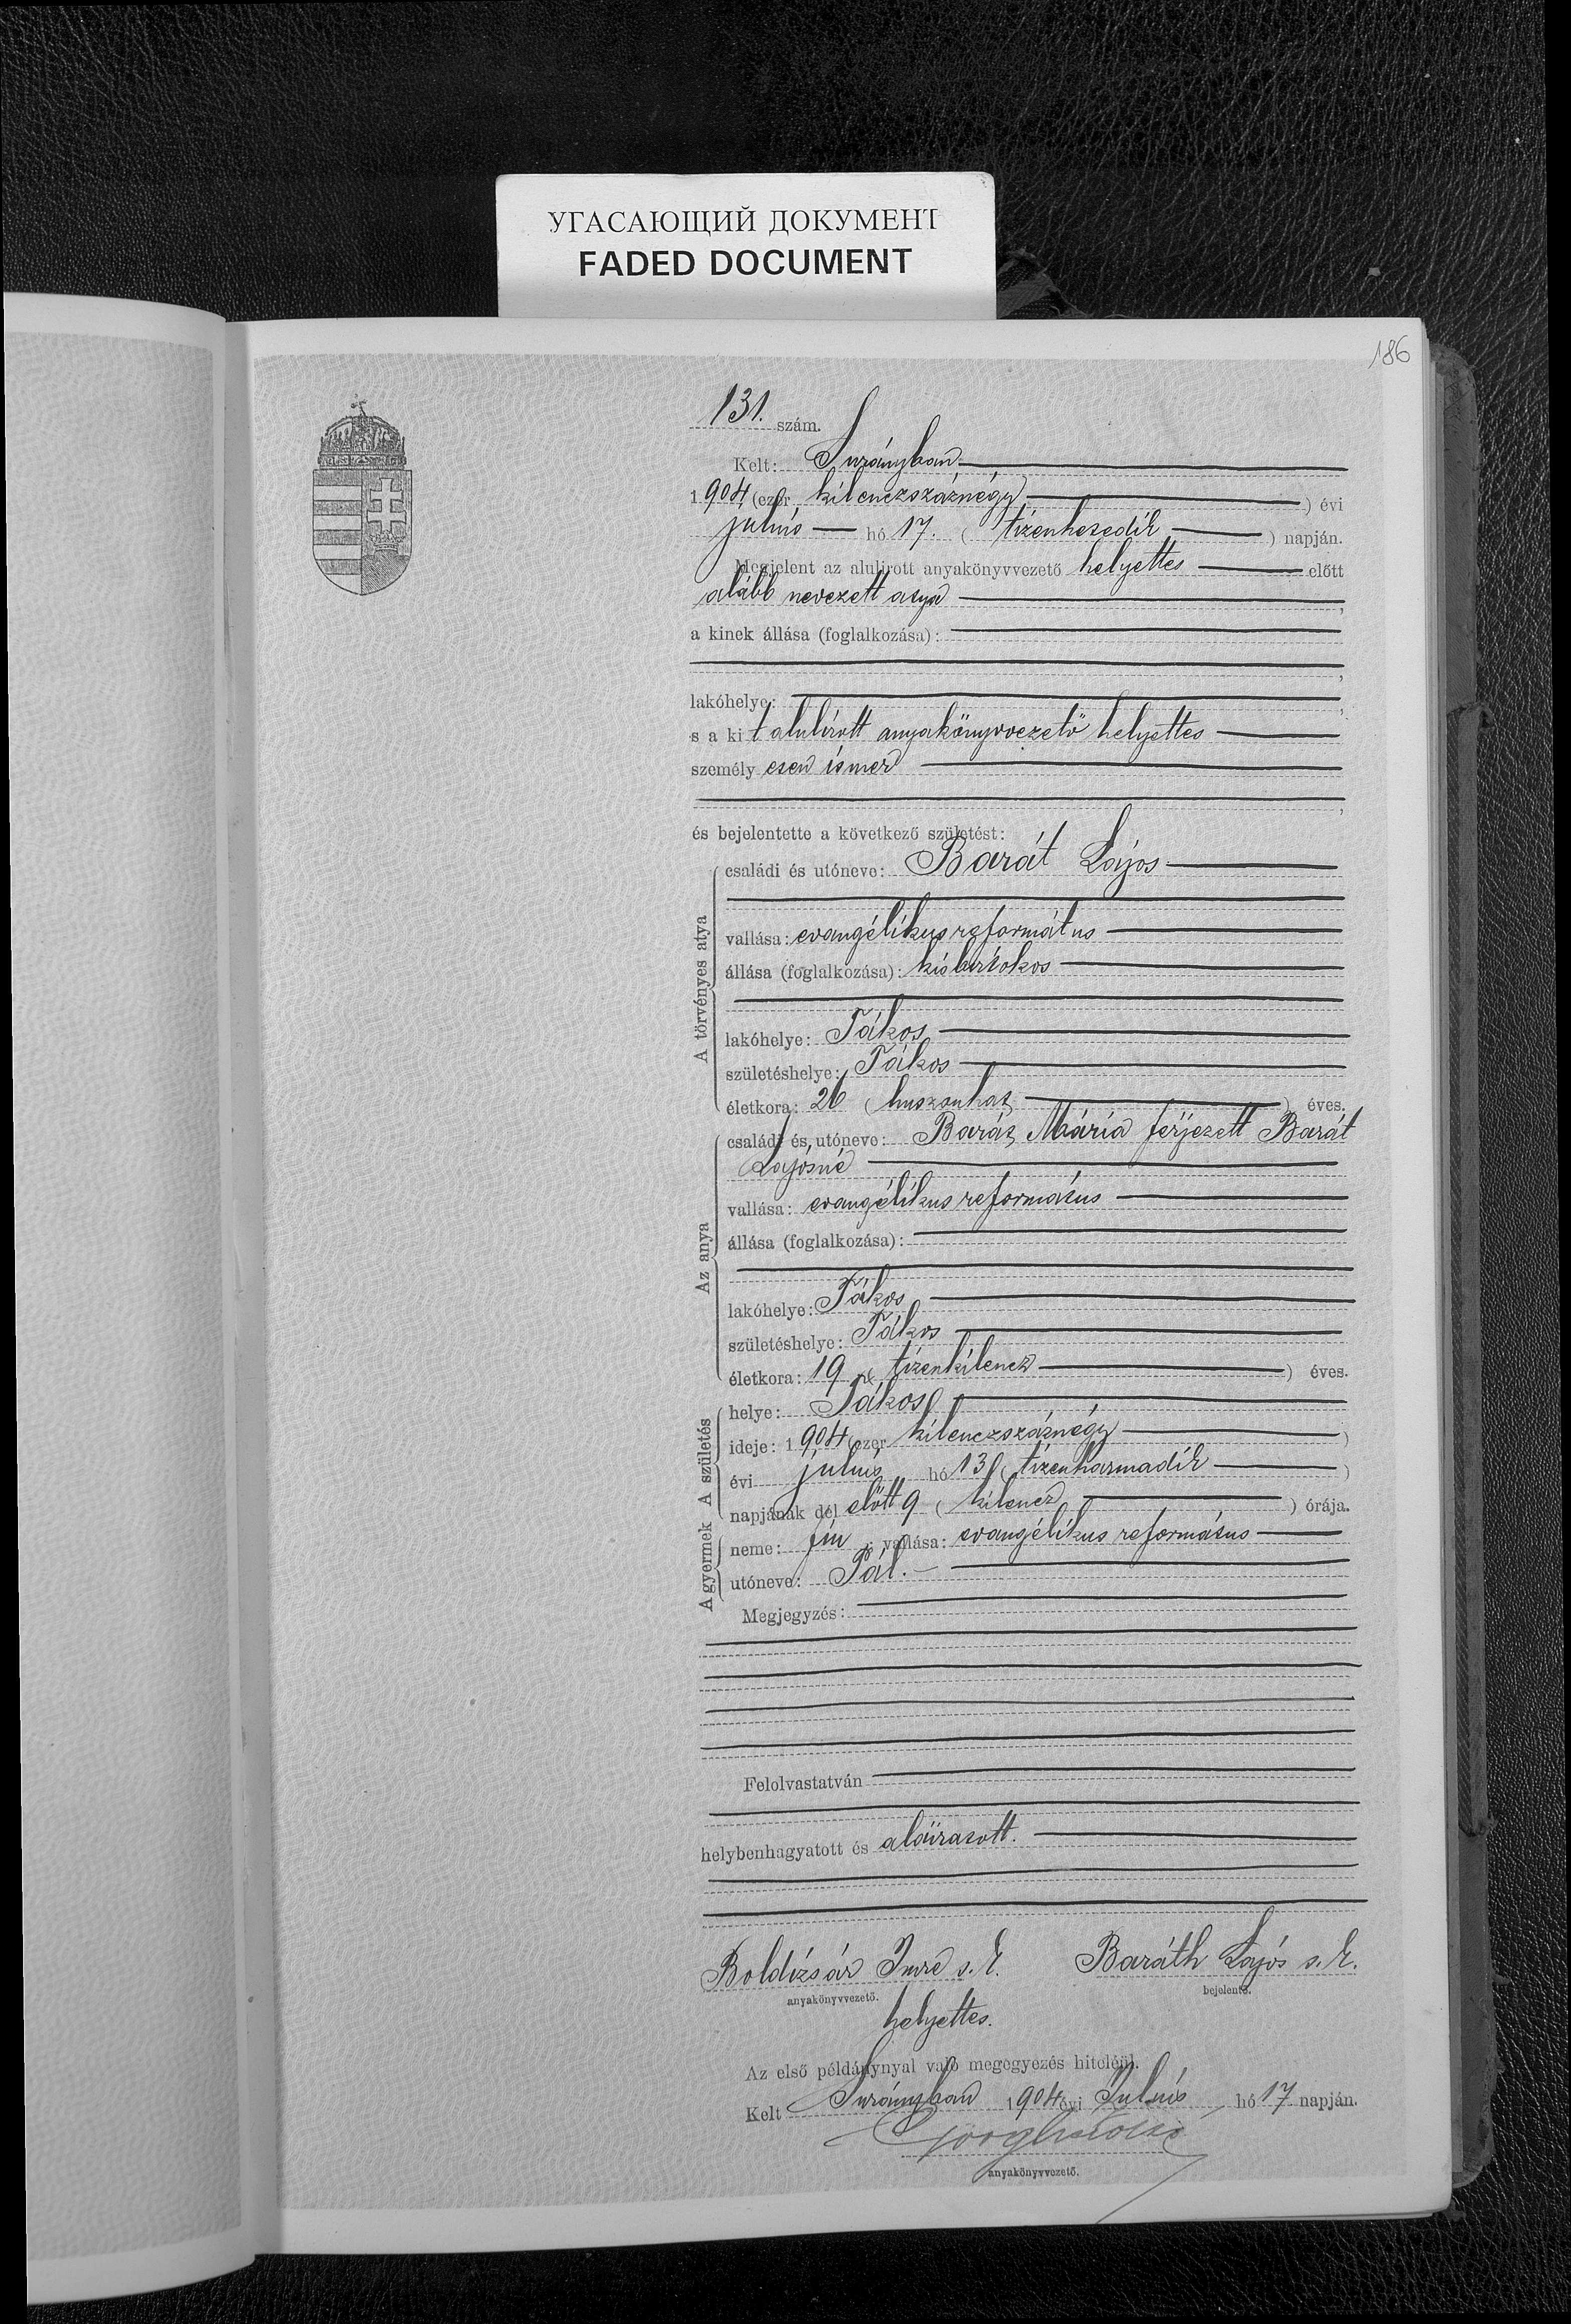 УГАСАЮЩИЙ ДОКУМЕНТ
FADED DOCUMENT
186
131. szám.
Kelt: Surányban
1904 (ezer kilenczszáznégy) évi
julius hó 17. (tizenhetedik) napján.
Megjelent az alulirott anyakönyvvezető helyettes előtt
alább nevezett atya,
a kinek állása (foglalkozása):
,
lakóhelye: ,
s a kit alulírott anyakönyvvezető helyettes
személyesen ismer
,
és bejelentette a következő születést:
A törvényes atya
családi és utóneve: Barát Lajos
vallása: evangélikus református
állása (foglalkozása): kisbirtokos
lakóhelye: Tákos
születéshelye: Tákos
életkora: 26 (huszonhat) éves.
Az anya
családi és utóneve: Barát Mária férjezett Barát
Lajosné
vallása: evangélikus református
állása (foglalkozása):
lakóhelye: Tákos
születéshelye: Tákos
életkora: 19 (tizenkilencz) éves.
A születés
helye: Tákos
ideje: 1904 (ezer kilenczszáznégy)
évi julius hó 13 (tizenharmadik)
napjának dél előtt 9 (kilencz) órája.
A gyermek
neme: fiu; vallása: evangélikus református
utóneve: Pál.
Megjegyzés:
Felolvastatván
helybenhagyatott és aláiratott.
Boldizsár Imre s. k. Baráth Lajós s. k.
anyakönyvvezető. bejelentő.
helyettes.
Az első példánynyal való megegyezés hiteléül.
Kelt Surányban 1904 évi Julius hó 17 napján.
anyakönyvvezető.